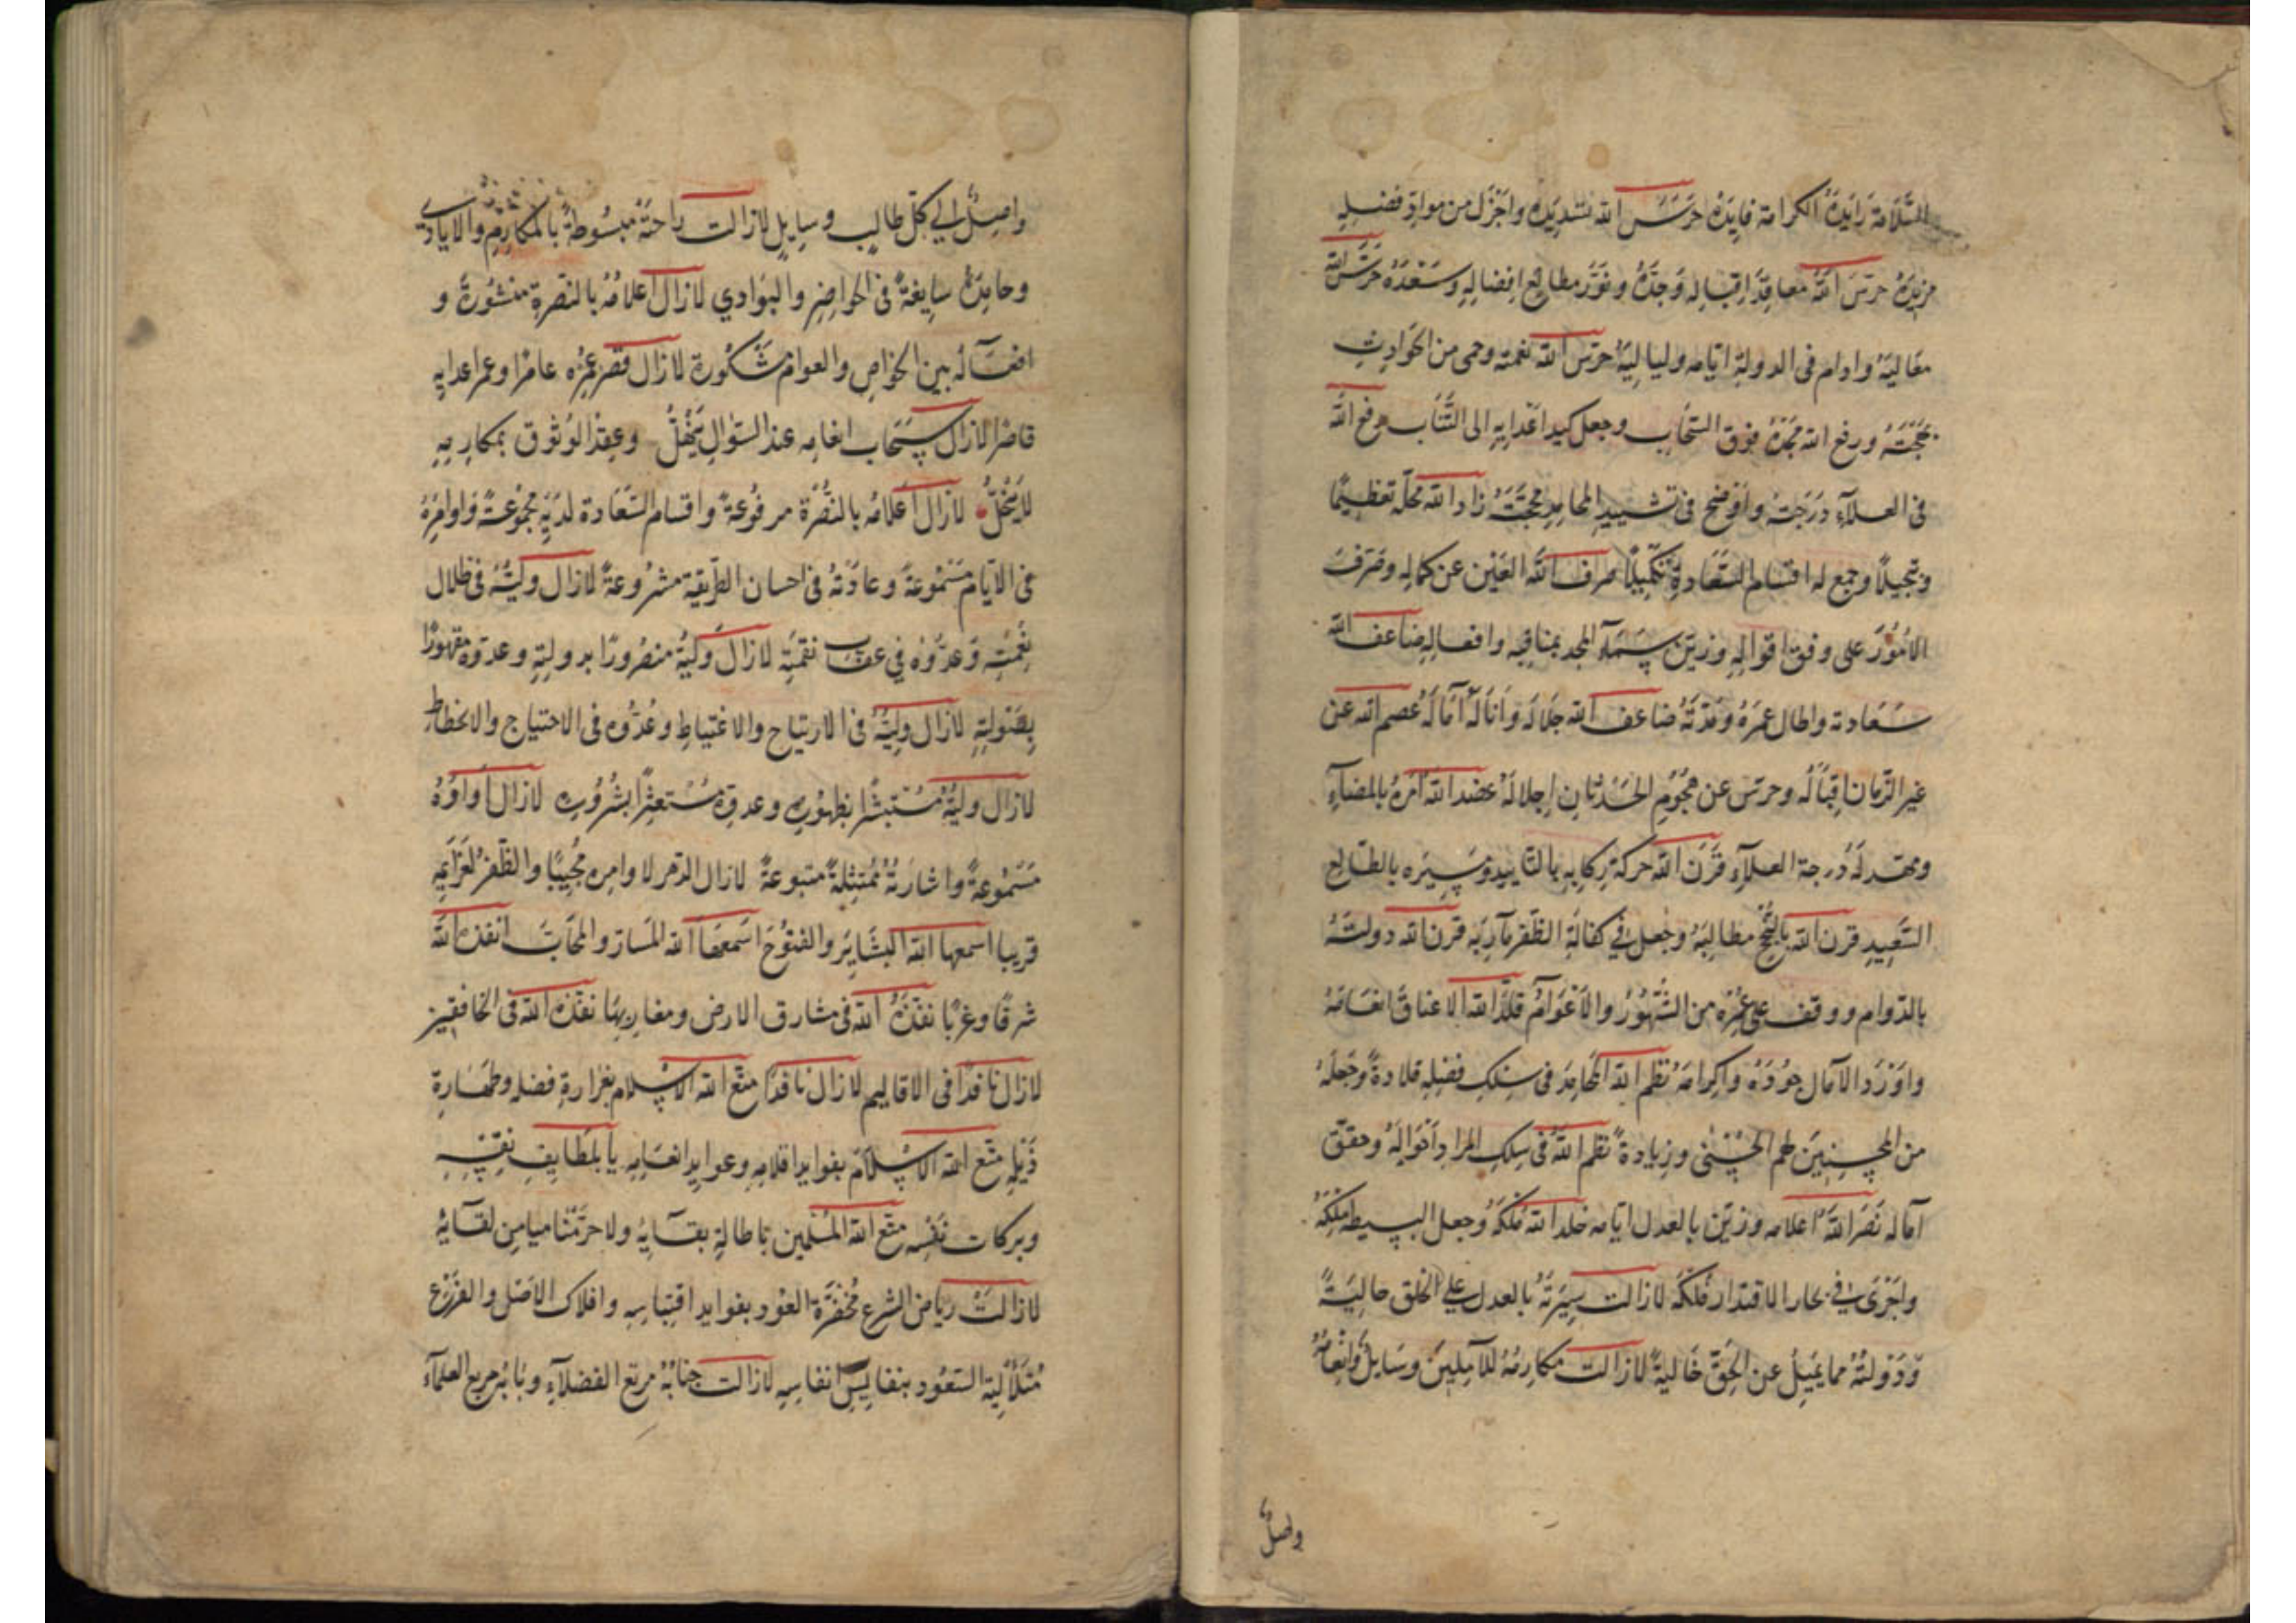 السّلامة زايدة الكرامة فايدة حرسَ الله تشديده واجزل من موادّ فضله
مزيده حرسَ اللهُ معاقد اقباله وَجدّهُ ونوّر مطالع افضاله وسَعْدَهُ حرسَ الله
معاليَهُ وادام فى الدولة ايّامه ولياليَهُ حرس الله نعمته وحمى من الحوادث
مُهجَتَهُ ورفع الله مجدهُ فوق السّحاب وجعل كيد اعدايه الى التّباب رفع اللهُ
فى العلآءِ دَرَجته واَوضح فى تشييد المحامد محجّتَهُ زاد الله محلّه تعظيمًا
وتبجيلًا وجمع له اقسام السّعادة تكميلًا صرف اللهُ العَيْن عن كماله وصَرفَ
الامُوُرَ على وفق اقواله وزيّن سَمآءَ المجد بمناقبه وافعاله ضاعف الله
سَعَادته واطال عمرَهُ ومُدّتَهُ ضاعف الله جلاله وَاَنالهُ آمالَهُ عصم الله عن
غير الزّمان اِقبَالَهُ وحرسَ عن هجُومِ الحَدثانِ اِجلالهُ عضد الله امرهُ بالمضآءِ
ومهّد لهُ درجة العلآءِ قَرَن الله حركة رِكابه بالتاييد وسَيره بالطّالع
السّعِيدِ قرن الله بالنُّجحِ مطالبَهُ وجعل فى كفالة الظّفر مآربَه قرن الله دولتَهُ
بالدّوام ووقف على عِزّه من الشّهُوُرُ والاَعْوَامُ قلّد الله الاعناق انعَامَهُ
واَوْرَد الآمال جوُدَهُ واكرامَهُ نظم الله المحامدَ فى سِلكِ فضلِهِ قلادةً وَجَعلَهُ
من المحسنِينَ لهم الحُسْنٰى وزِيادةً نظم اللهُ فى سِلكِ المراد اَحْوَالهُ وحقق
آماله نَصَر اللهُ اعلامه وزيّن بالعدل ايّامه خلد الله مُلكهُ وجعل البسيطه مِلْكَهُ
واَجْرَى فى بحار الاقتدار فُلْكَهُ لازالت سِيرَتُهُ بالعدل على الخلق حالِيَةً
وَدَوْلتُهُ مما يميلُ عن الحَقّ خَاليةً لازالت مكارمُهُ للآمِلِينَ وسَايلُ وَاِنعامُهُ
واصلٌ
واصلٌ الى كلّ طالب وسايل لازالت راحتهُ مبسُوطةً بالمكارم والايادى
وحامِدهُ سايغةً فى الحواضِر والبَوادي لازال اعلامُهُ بالنصرة منشورةً و
افعآلُهُ بين الخواص والعوام مشكورة لازال قصر عِزّه عامرًا وعمر اعدايه
قاصرًا لازال سَحاب انعامه عند السّوال يَهْطِلُ وعقد الوثوق بمكارمِهِ
لايَنْحَلُّ لازال اَعلامُه بالنُّصْرة مرفوعةً واقسام السّعَادة لديهِ مجموُعَةً وَاوامِرهُ
فى الايّام مَسْموُعةً وعادَتهُ فى احسان الطّريقة مشروعةً لازال وليّهُ فى ظلال
نِعْمَتِه وَعدُوّه في عقاب نقمتِه لازالَ وَليّهُ منصُورًا بدولتِهِ وعدوّهُ مقهورًا
بِصَوْلتِهِ لازال وليّهُ فى الارتياح والاغتباطِ وعَدُوّه فى الاحتياج والانحطاطِ
لازال وليّهُ مُسْتَبشرًا بظهُوره وعدوّه مُستعثرًا بشرُوره لازال اَوامرُهُ
مَسْمُوعةً واشارتُهُ مُمتثِلةً متبوعةً لازال الدّهر لاوامره مُجيبًا والظّفرُ لعَزَايمه
قريبا اسمعها الله البشايَر والفتوُحَ اسمعها الله المسارّ والمحابّ انفذه اللهُ
شرقًا وغربًا نفّذهُ اللهُ فى مشارق الارض ومغاربِهَا نفّذه الله فى الخافقين
لازال نافذًا فى الاقاليم لازال نافذًا متّع الله الاسلام بغزارة فضله وطهَارة
ذَيلِهِ متّع الله الاسلامَ بفوايد اقلامِهِ وعوايد انعَامِهِ بلطايف نفسِهِ
وبركات نَفْسِه متّع الله المسْلمين باطالةِ بقآيِهُ ولاحرَمَنا ميامِن لقآيهُ
لازالتْ رياض الشرع مُخضرّة العوُد بفوايد اقتباسِهِ وافلاك الاَصْل والفَرْع
مُتلاَلِئَة السّعوُد بنفايسِ انفاسِهِ لازالت جنابُهُ مرتع الفضلآءِ وبَابُهُ مربع العلمآءِ